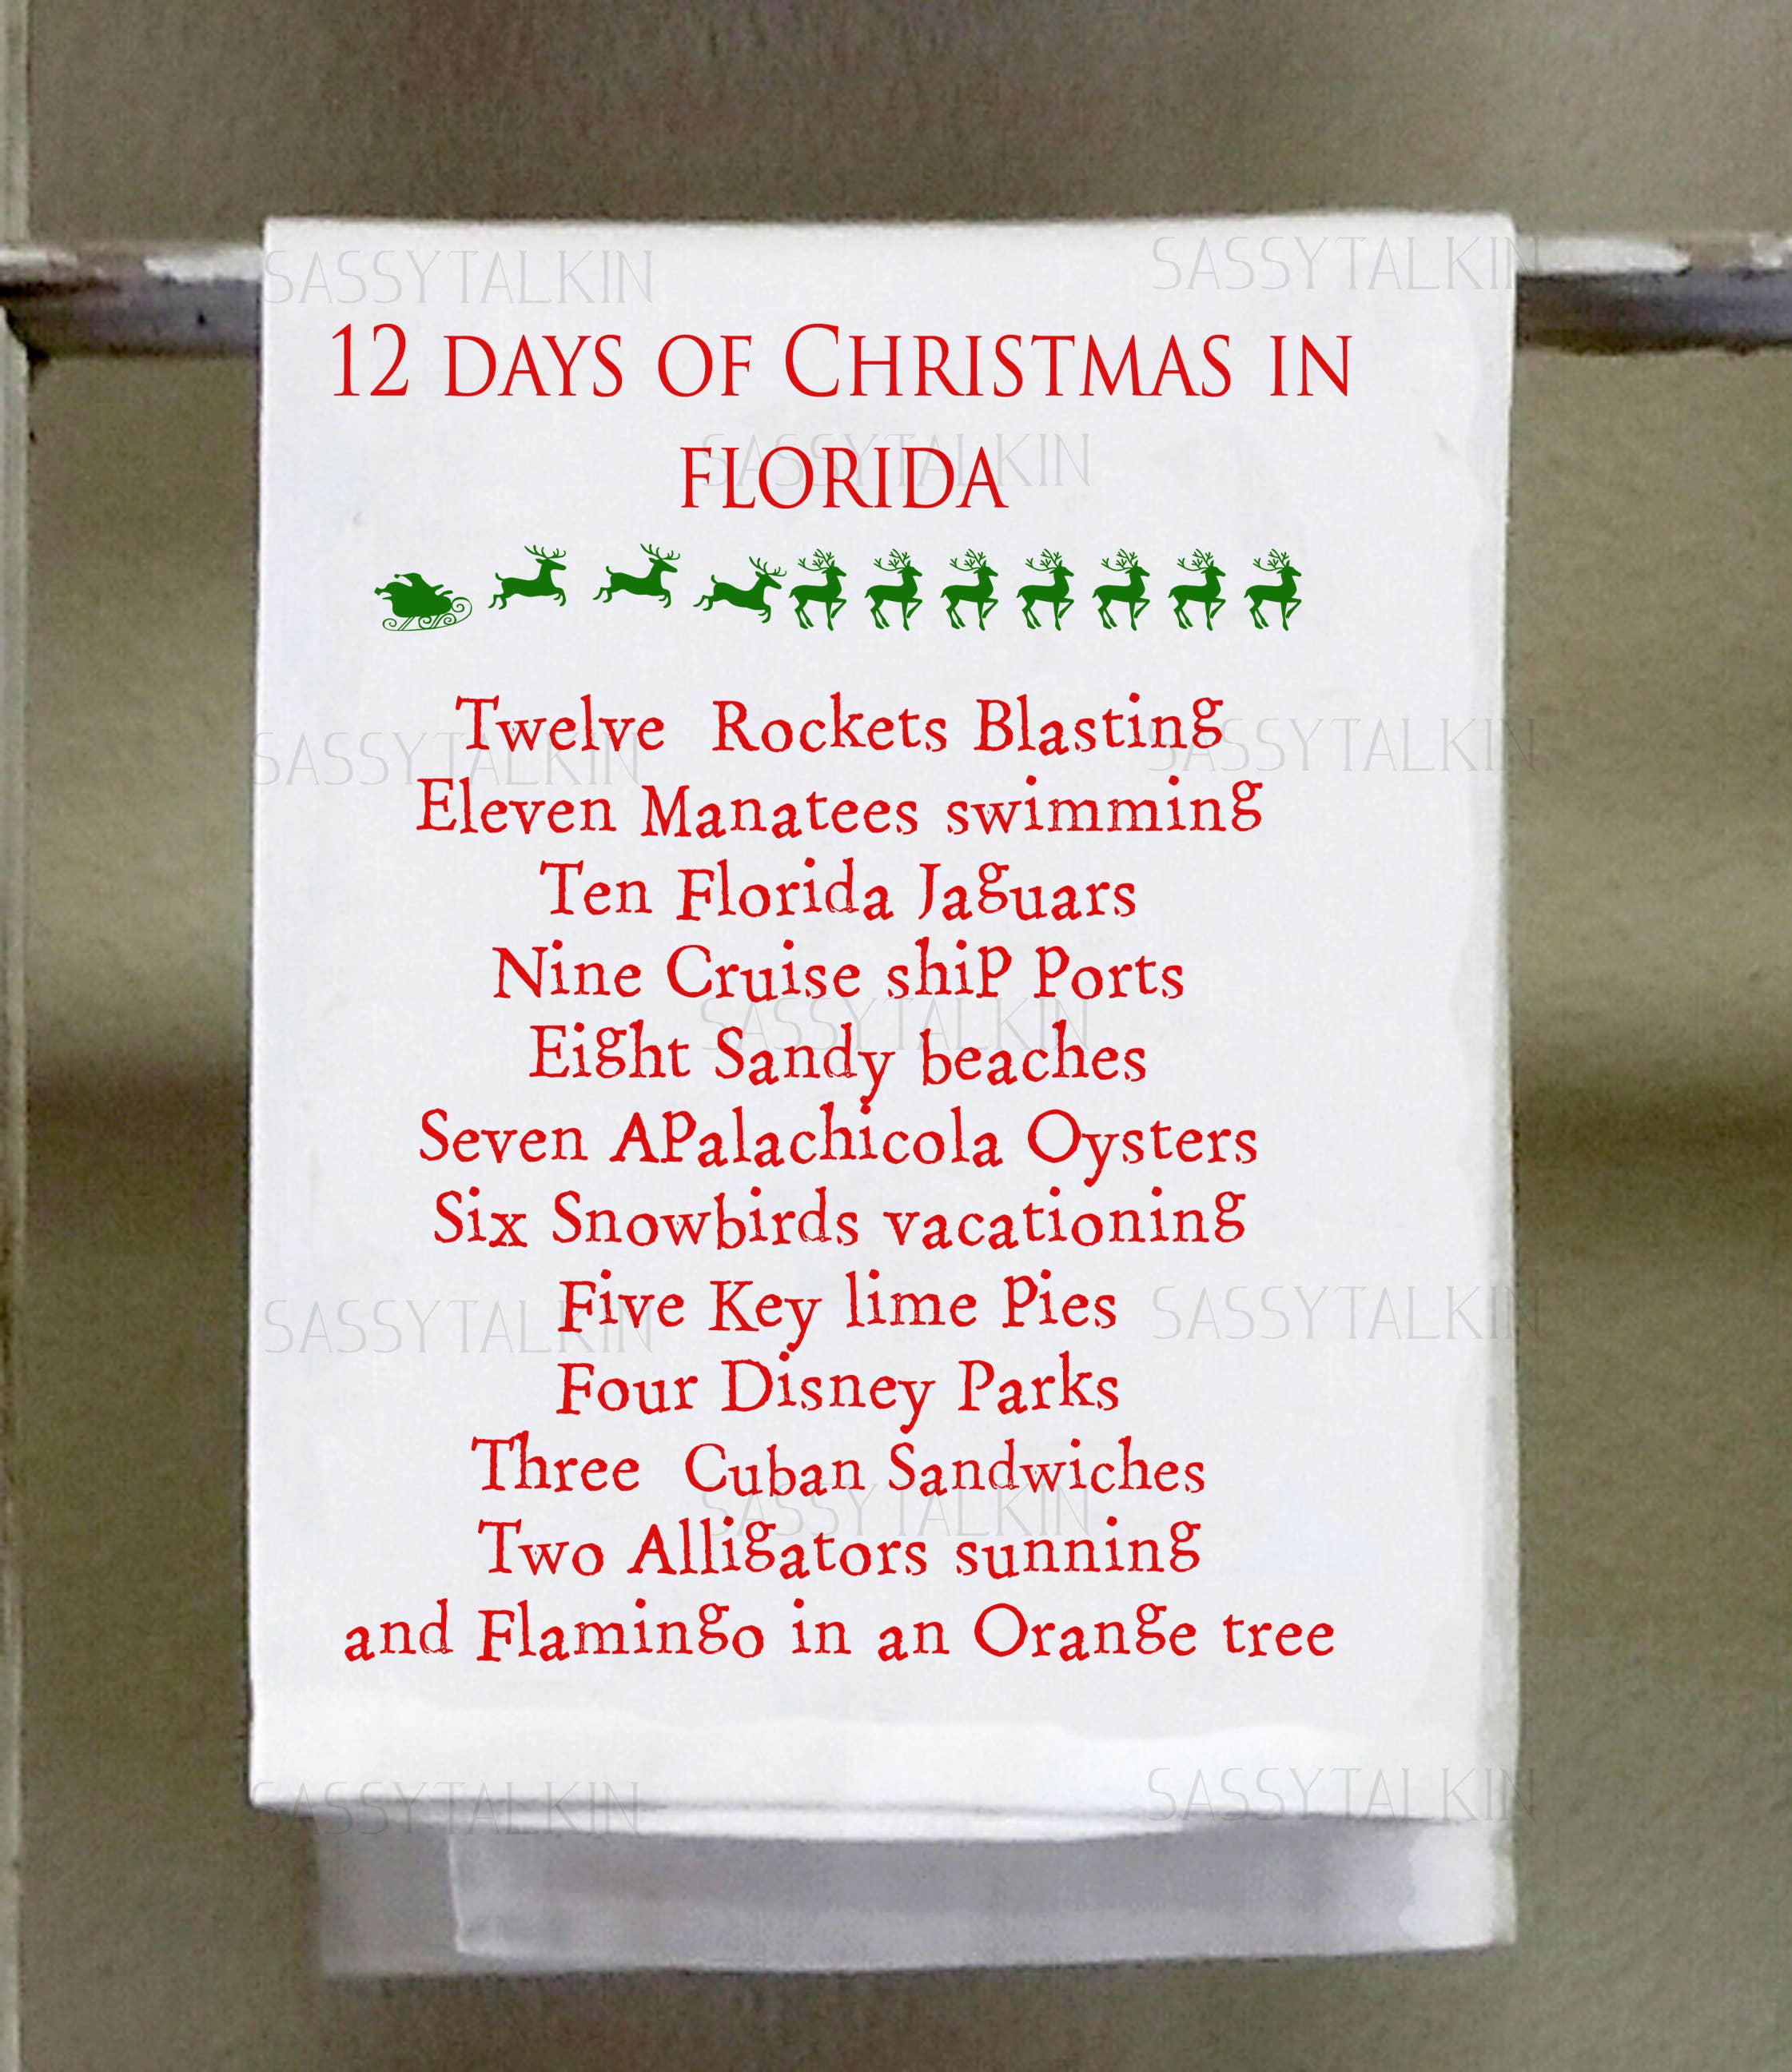 SASSYTALKIN SASSYTALKIN
12 DAYS OF CHRISTMAS IN
SASSYTALKIN
FLORIDA
Twelve Rockets Blasting
SASSYTALKIN SASSYTALKIN
Eleven Manatees swimming
Ten Florida Jaguars
Nine Cruise shiP Ports
SASSYTALKIN
Eight Sandy beaches
Seven APalachicola Oysters
Six Snowbirds vacationing
Five Key lime Pies
SASSYTALKIN SASSYTALKIN
Four Disney Parks
Three Cuban Sandwiches
SASSYTALKIN
Two Alligators sunning
and Flamingo in an Orange tree
SASSYTALKIN SASSYTALKIN